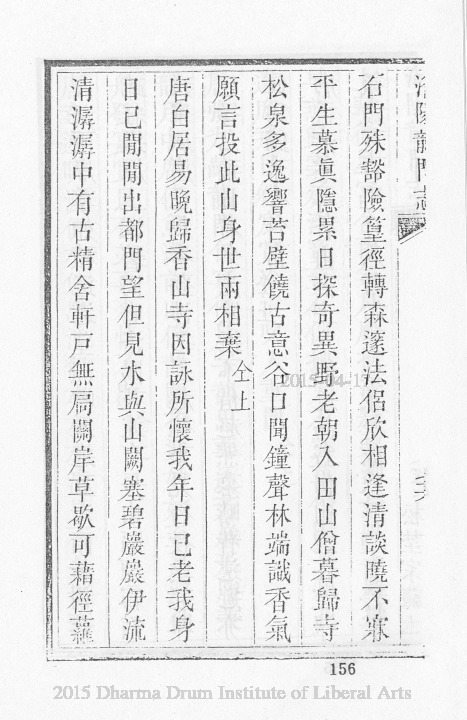 洛陽龍門志
石門殊豁險篁徑轉森邃法侶欣相逢清談曉不寐
平生慕眞隱累日探奇異野老朝入田山僧暮歸寺
松泉多逸響苔壁饒古意谷口聞鐘聲林端識香氣
願言投此山身世兩相棄 仝上
唐白居易晚歸香山寺因詠所懷我年日已老我身
日已閒閒出都門望但見水與山闕塞碧巖巖伊流
清潺潺中有古精舍軒戶無扃關岸草歇可藉徑蘿
2015-04-17
156
2015 Dharma Drum Institute of Liberal Arts